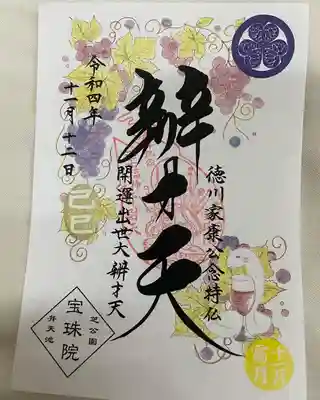 徳川家康公念持仏
辨才天
開運出世大辨才天
令和四年
十一月十二日
己巳
芝公園
宝珠院
弁天池